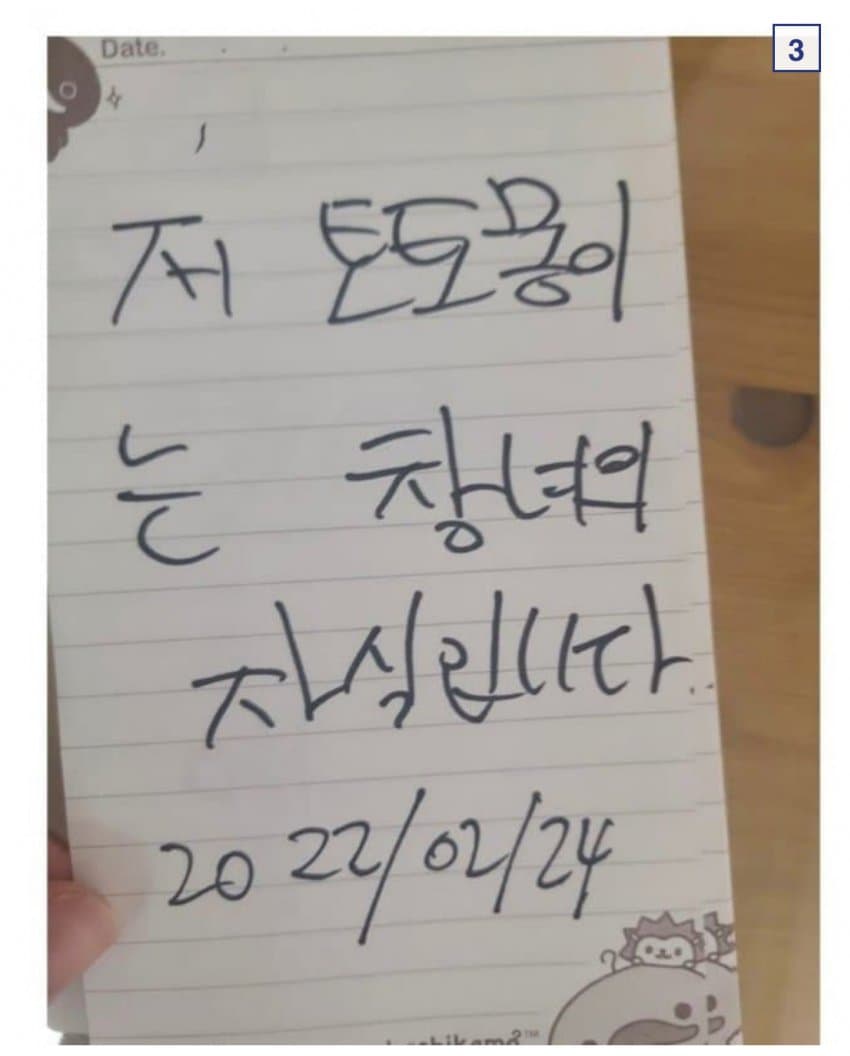 3
Date.
저 톤도몽이
는 창녀의
자식입니다..
2022/02/24